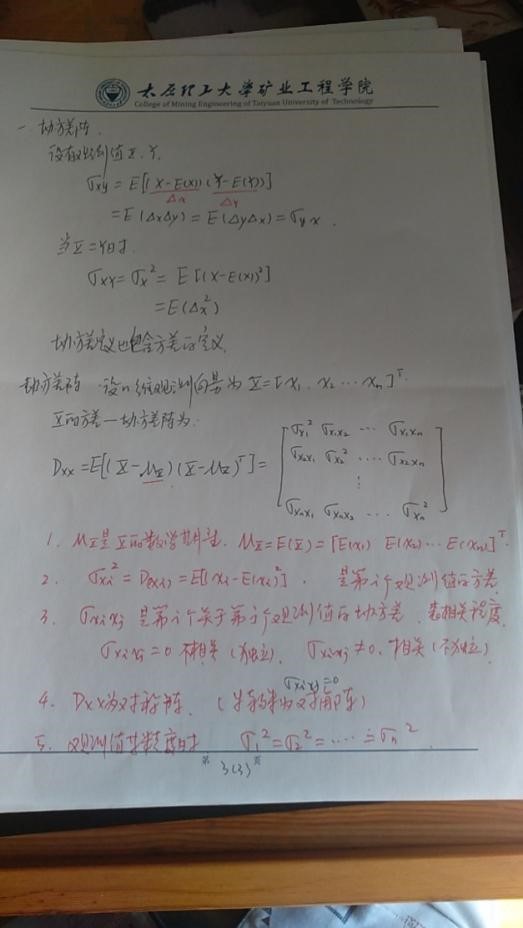 太原理工大学矿业工程学院
College of Mining Engineering of Taiyuan University of Technology
一 协方差阵.
设有观测值X、Y.
σxy = E[(X−E(X))(Y−E(Y))]
Δx Δy
= E(ΔxΔy) = E(ΔyΔx) = σyx.
当X=Y时.
σxx = σx² = E[(X−E(X))²]
= E(Δx²)
协方差定义也包含方差的定义.
协方差阵 设n维观测向量为 X=[X1, X2 ⋯ Xn]ᵀ.
X的方差—协方差阵为.
Dxx = E[(X−μX)(X−μX)ᵀ] =
σx1² σx1x2 ⋯ σx1xn
σx2x1 σx2² ⋯ σx2xn
⋮
σxnx1 σxnx2 ⋯ σxn²
1. μX是X的数学期望. μX=E(X)=[E(X1) E(X2)⋯E(Xn)]ᵀ.
2. σxi² = D(xi) = E[(Xi−E(Xi)²], 是第i个观测值的方差
3. σxixj 是第i个关于第j个观测值的协方差. 表相关程度.
σxixj=0 不相关(独立). σxixj≠0, 相关(不独立)
σxixj=0
4. Dxx为对称阵. ( 为对角阵)
5. 观测值等精度时 σ1²=σ2²=⋯=σn².
第 3(3) 页